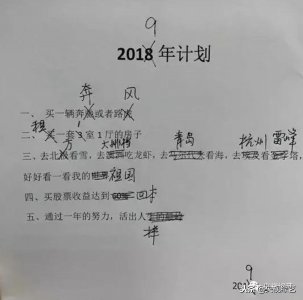 9
2018 年计划
奔 风
一、买一辆奔驰或者路虎
租 1
二、买一套 3 室 1 厅的房子
方 大排档 青岛 杭州 雷峰
三、去北极看雪,去澳洲吃龙虾,去马尔代夫看海,去埃及看金字塔,
好好看一看我的世界祖国
四、买股票收益达到 60% 回本
五、通过一年的努力,活出人
样
9
201